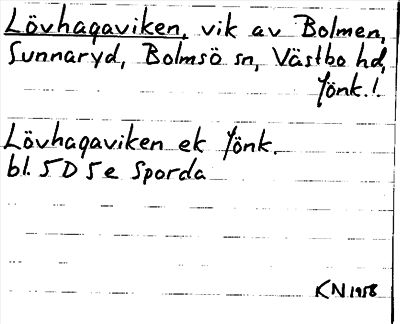 Lövhagaviken, vik av Bolmen,
Sunnaryd, Bolmsö sn, Västbo hd,
Jönk.l.
Lövhagaviken ek Jönk.
bl. 5D 5e Sporda
KN 1958